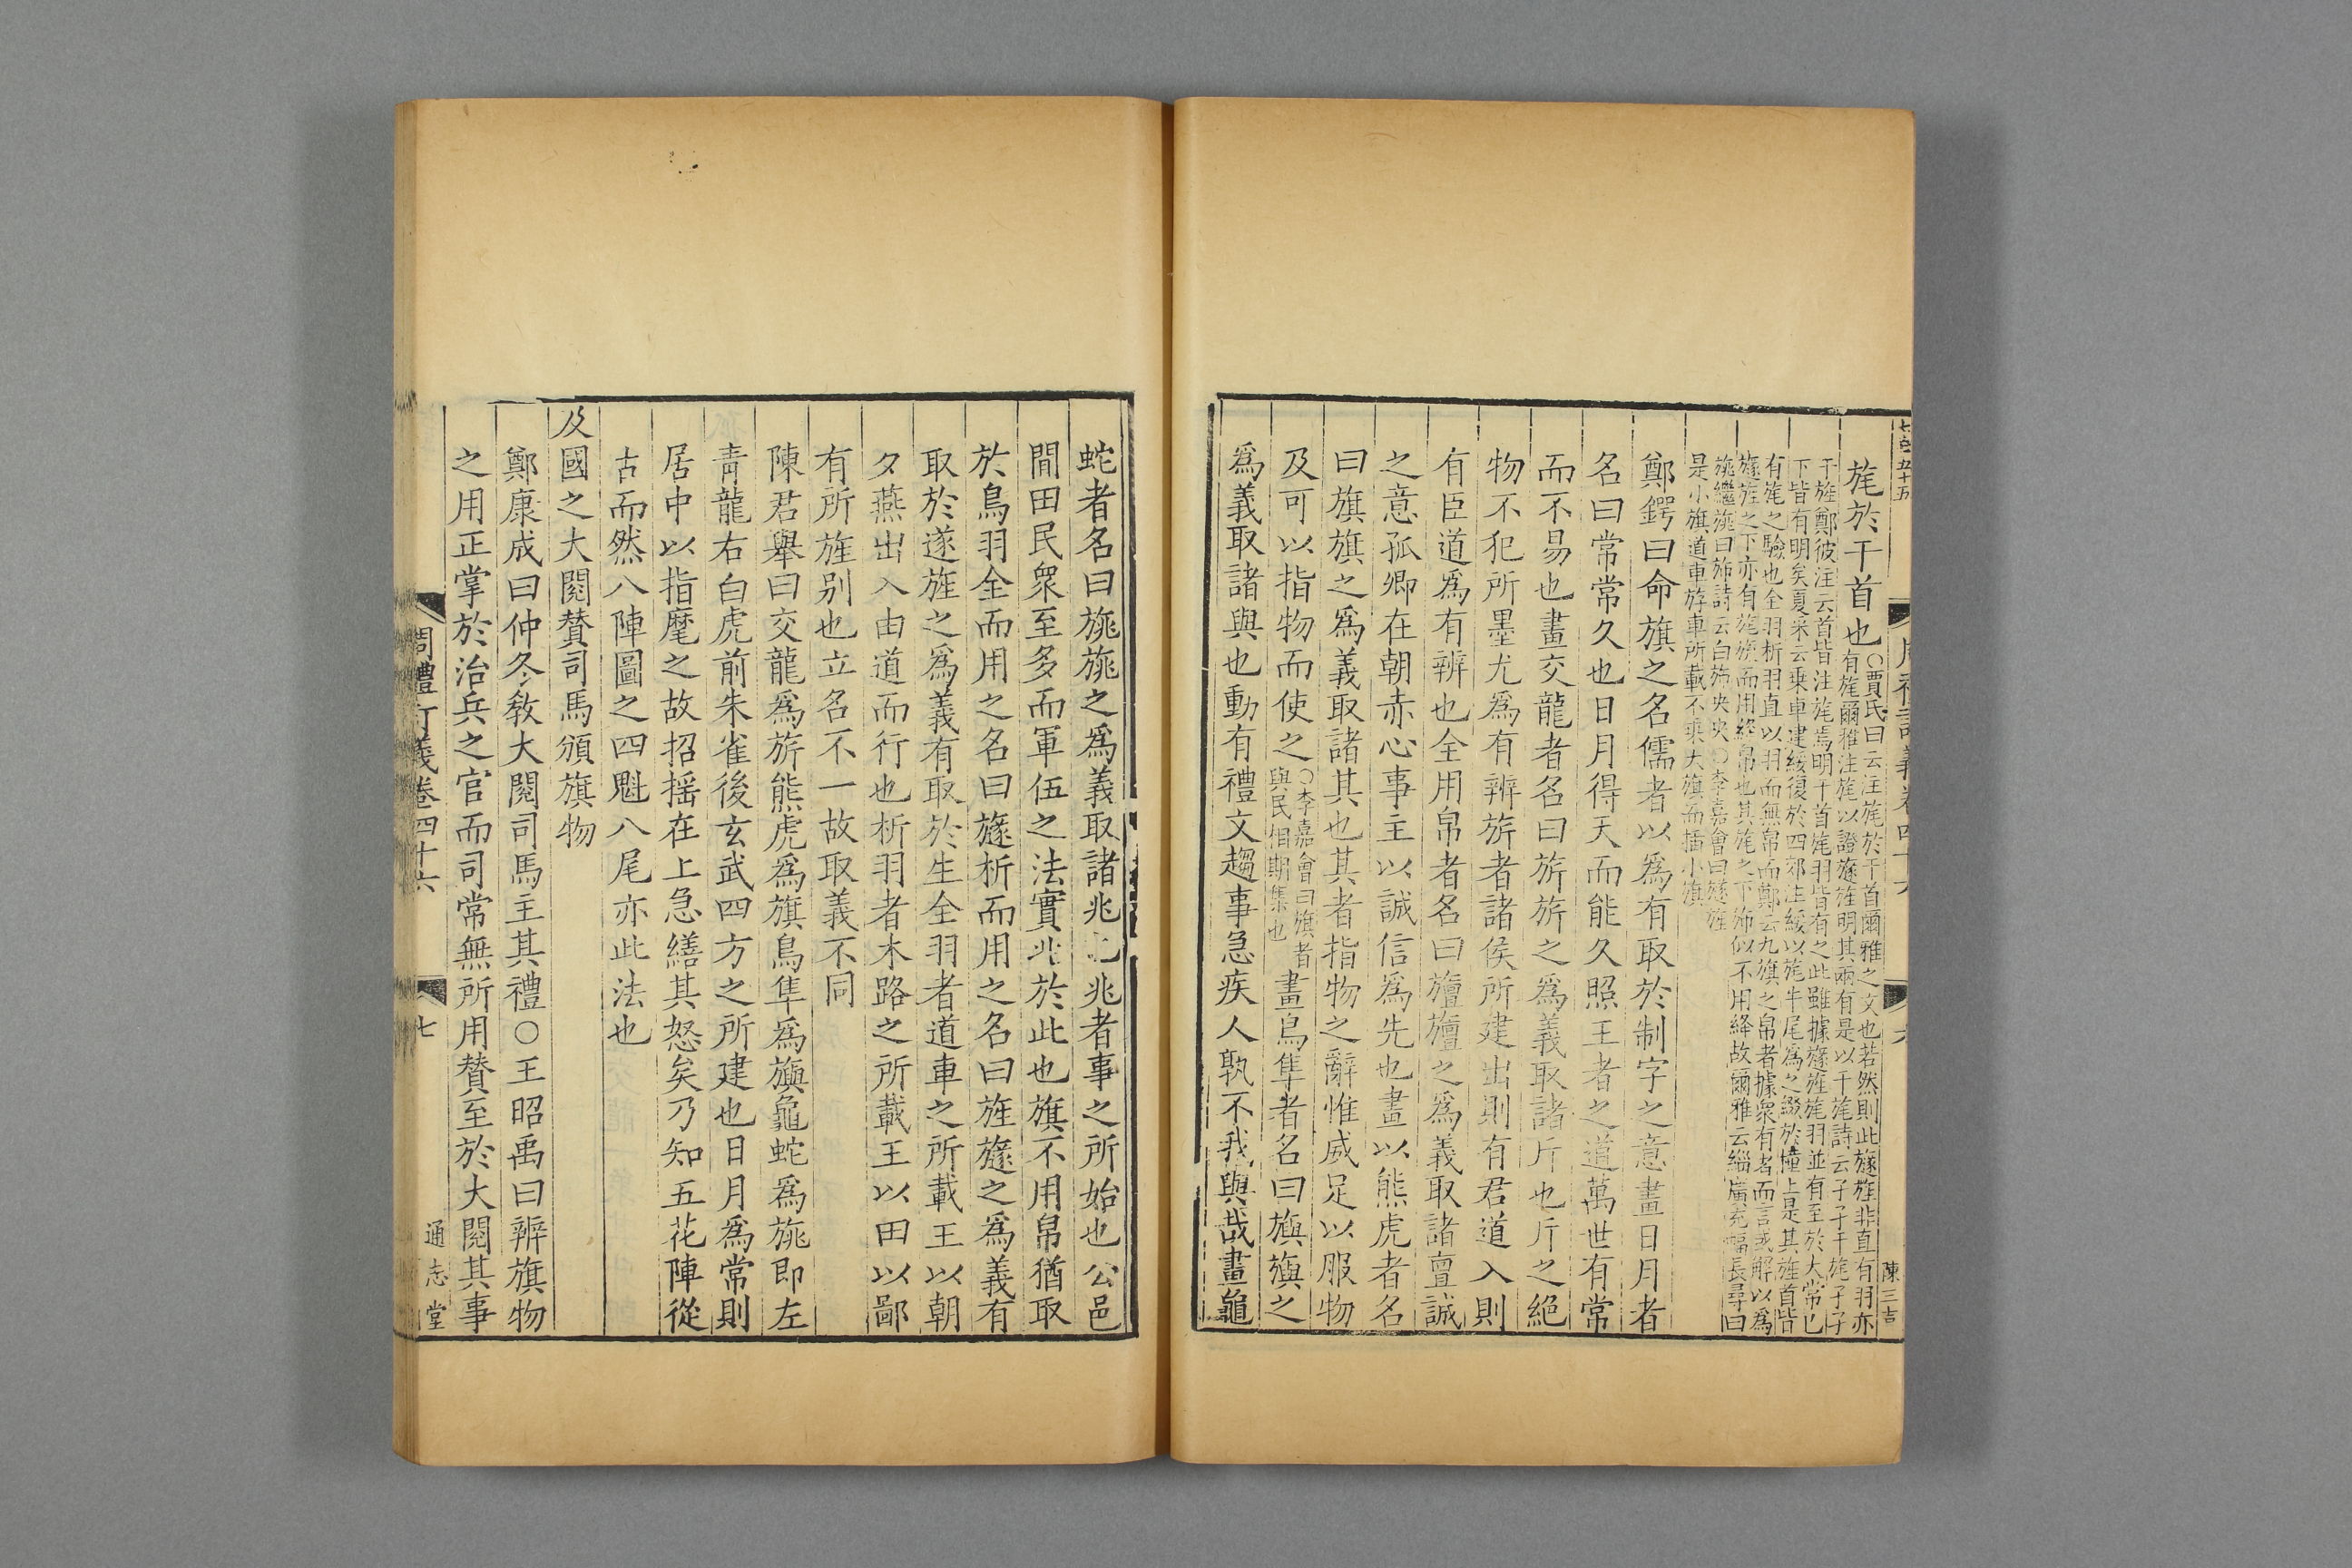 旄於干首也○賈氏曰云注旄於干首爾雅之文也若然則此旞旌非直有羽亦
有旄爾雅注旄以證旞旌明其兩有是以干旄詩云孑孑干旄孑孑
干旌鄭彼注云首皆注旄焉明干首旄羽皆有之此雖據旞旌旄羽並有至於大常已
下皆有明矣夏采云乗車建綏復於四郊注綏以旄牛尾爲之綴於橦上是其旌首皆
有旄之驗也全羽析羽直以羽而無帛而鄭云九旗之帛者據衆有者而言或解以爲
旞旌之下亦有旒縿而用絳帛也其旄之下旆似不用絳故爾雅云緇廣充幅長尋曰
旐繼旐曰旆詩云白旆央央○李嘉會曰旞旌
是小旗道車斿車所載不乘大旗而插小旗
鄭鍔曰命旗之名儒者以爲有取於制字之意畫日月者
名曰常常久也日月得天而能久照王者之道萬世有常
而不易也畫交龍者名曰旂旂之爲義取諸斤也斤之絕
物不犯所墨尤爲有辨旂者諸侯所建出則有君道入則
有臣道爲有辨也全用帛者名曰旜旜之爲義取諸亶誠
之意孤卿在朝赤心事主以誠信爲先也畫以熊虎者名
曰旗旗之爲義取諸其也其者指物之辭惟威足以服物
及可以指物而使之○李嘉會曰旗者與民相期集也畫鳥隼者名曰旟旟之
爲義取諸與也動有禮文趨事急疾人孰不我與哉畫龜
蛇者名曰旐旐之爲義取諸兆也兆者事之所始也公邑
閒田民衆至多而軍伍之法實兆於此也旗不用帛猶取
於鳥羽全而用之名曰旞析而用之名曰旌旞之爲義有
取於遂旌之爲義有取於生全羽者道車之所載王以朝
夕燕出入由道而行也析羽者木路之所載王以田以鄙
有所旌别也立名不一故取義不同
陳君舉曰交龍爲旂熊虎爲旗鳥隼爲旟龜蛇爲旐即左
青龍右白虎前朱雀後玄武四方之所建也日月爲常則
居中以指麾之故招搖在上急繕其怒矣乃知五花陣從
古而然八陣圖之四魁八尾亦此法也
及國之大閱賛司馬頒旗物
鄭康成曰仲冬敎大閱司馬主其禮○王昭禹曰辨旗物
之用正掌於治兵之官而司常無所用賛至於大閱其事
周禮訂義卷四十六
七
通志堂
周禮訂義卷四十六
六
陳三吉